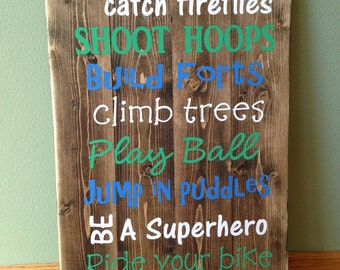 catch fireflies
SHOOT HOOPS
Build Forts
climb trees
Play Ball
JUMP IN PUDDLES
BE A Superhero
Ride your bike